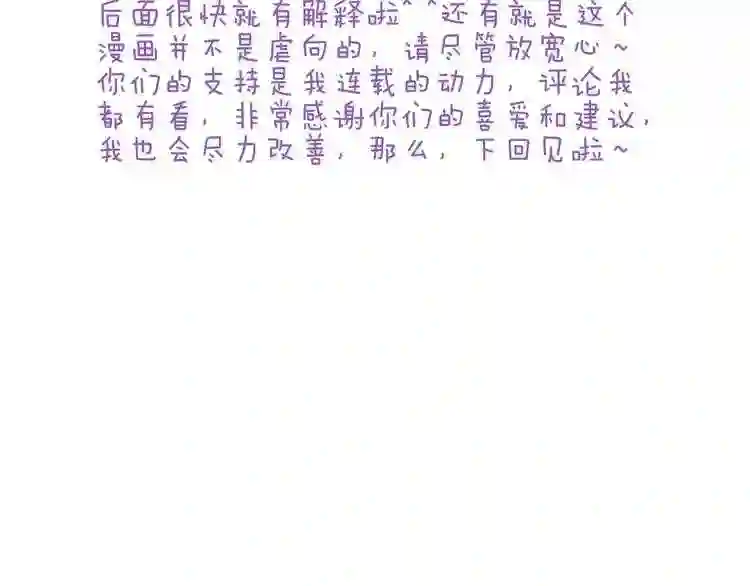 后面很快就有解释啦^ ^还有就是这个
漫画并不是虐向的，请尽管放宽心~
你们的支持是我连载的动力，评论我
都有看，非常感谢你们的喜爱和建议，
我也会尽力改善，那么，下回见啦~